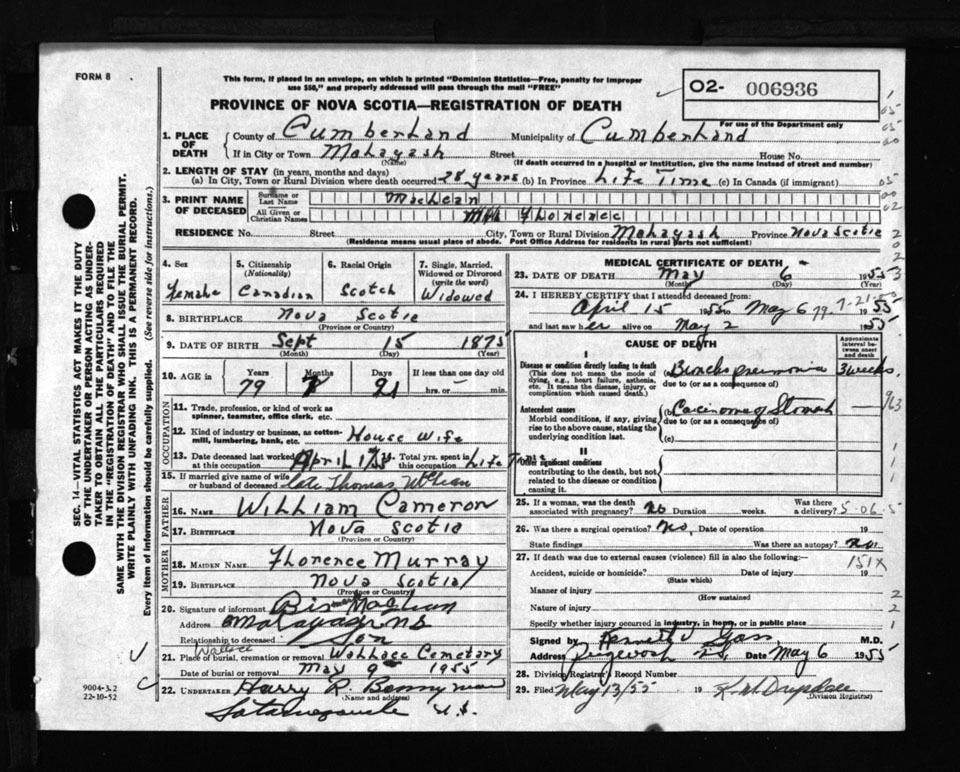 FORM 8
This form, if placed in an envelope, on which is printed "Dominion Statistics—Free, penalty for improper
use $50," and properly addressed will pass through the mail "FREE"
O2- 006936
For use of the Department only
PROVINCE OF NOVA SCOTIA—REGISTRATION OF DEATH
1. PLACE OF DEATH { County of Cumberland Municipality of Cumberland
If in City or Town (Name) Street House No.
(If death occurred in a hospital or institution, give the name instead of street and number)
2. LENGTH OF STAY (in years, months and days)
(a) In City, Town or Rural Division where death occurred 28 years (b) In Province Life Time (c) In Canada (if immigrant)
3. PRINT NAME OF DECEASED { Surname or Last Name MacLean
All Given or Christian Names Florence
RESIDENCE No. Street City, Town or Rural Division Province Nova Scotia
(Residence means usual place of abode. Post Office Address for residents in rural parts not sufficient)
4. Sex Female
5. Citizenship (Nationality) Canadian
6. Racial Origin Scotch
7. Single, Married, Widowed or Divorced (write the word) Widowed
8. BIRTHPLACE Nova Scotia
(Province or Country)
9. DATE OF BIRTH Sept 15 1875
(Month) (Day) (Year)
10. AGE in Years Months Days If less than one day
79 7 21 hrs. or — min.
OCCUPATION
11. Trade, profession, or kind of work as spinner, teamster, office clerk, etc.
12. Kind of industry or business, as cotton-mill, lumbering, bank, etc. House Wife
13. Date deceased last worked at this occupation April Total yrs. spent in this occupation Life Time
15. If married give name of wife or husband of deceased late Thomas McLean
FATHER
16. Name William Cameron
17. Birthplace Nova Scotia
(Province or Country)
MOTHER
18. Maiden Name Florence Murray
19. Birthplace Nova Scotia
(Province or Country)
20. Signature of informant
Address
Relationship to deceased Son
Wallace
21. Place of burial, cremation or removal Wallace Cemetary
Date of burial or removal May 9 1955
22. UNDERTAKER Harry R. Bonnyman
(Name and address)
Tatamagouche N.S.
MEDICAL CERTIFICATE OF DEATH
23. DATE OF DEATH May 6 1955
(Month) (Day)
24. I HEREBY CERTIFY that I attended deceased from:
April 15 1955 to May 6 1955
79 7-21
and last saw her alive on May 2 1955
CAUSE OF DEATH
Approximate interval between onset and death
I
Disease or condition directly leading to death
(This does not mean the mode of dying, e.g., heart failure, asthenia, etc. It means the disease, injury, or complication which caused death.)
(a) Broncho pneumonia 3 weeks
due to (or as a consequence of)
Antecedent causes
Morbid conditions, if any, giving rise to the above cause, stating the underlying condition last.
(b) Carcinoma of Stomach
due to (or as a consequence of)
(c)
II
Other significant conditions
contributing to the death, but not related to the disease or condition causing it.
25. If a woman, was the death associated with pregnancy? No Duration weeks. Was there a delivery?
26. Was there a surgical operation? No. Date of operation 19
State findings Was there an autopsy? No.
151X
27. If death was due to external causes (violence) fill in also the following:—
Accident, suicide or homicide? (State which) Date of injury 19
Manner of injury
(How sustained)
Nature of injury
Specify whether injury occurred in industry, in home, or in public place
Signed by M.D.
Address Pugwash N.S. Date May 6 1955
28. Division Registrar's Record Number
29. Filed May 13/55 19
(Division Registrar)
SEC. 14—VITAL STATISTICS ACT MAKES IT THE DUTY
OF THE UNDERTAKER OR PERSON ACTING AS UNDER-
TAKER TO OBTAIN ALL THE PARTICULARS REQUIRED
IN THE "REGISTRATION OF DEATH" AND TO FILE THE
SAME WITH THE DIVISION REGISTRAR WHO SHALL ISSUE THE BURIAL PERMIT.
WRITE PLAINLY WITH UNFADING INK. THIS IS A PERMANENT RECORD.
Every item of information should be carefully supplied. (See reverse side for instructions.)
9004-3.2
22-10-52